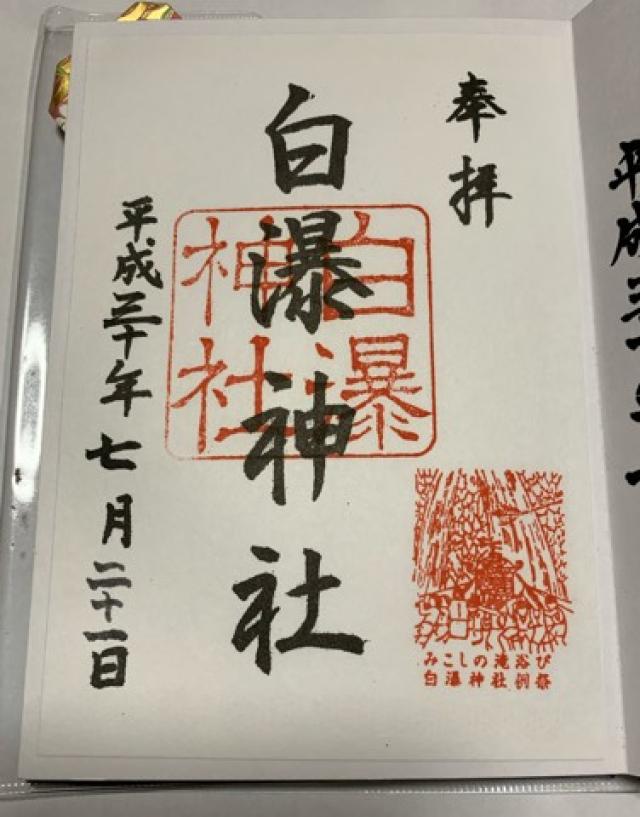 奉拝
白瀑神社
白瀑
神社
平成三十年七月二十一日
みこしの滝浴び
白瀑神社例祭
平成三十